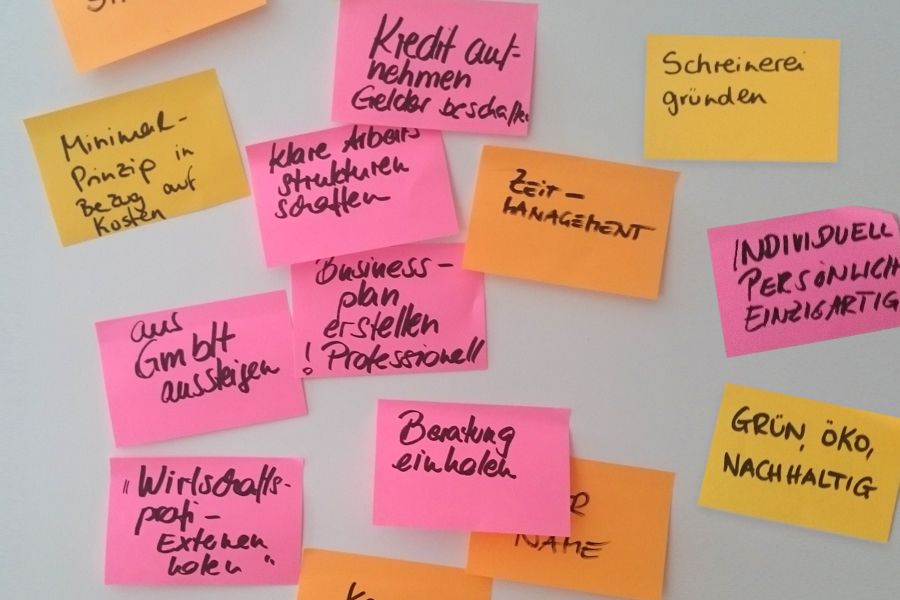 Kredit auf-
nehmen
Gelder beschaffen
Schreinerei
gründen
Minimal-
Prinzip in
Bezug auf
Kosten
klare Arbeits
strukturen
schaffen
ZEIT-
MANAGEMENT
INDIVIDUELL
PERSÖNLICH
EINZIGARTIG
Business-
plan
erstellen
! Professionell
aus
GmbH
aussteigen
Beratung
einholen
GRÜN, ÖKO,
NACHHALTIG
"Wirtschafts-
profi-
Externen
holen"
NAME